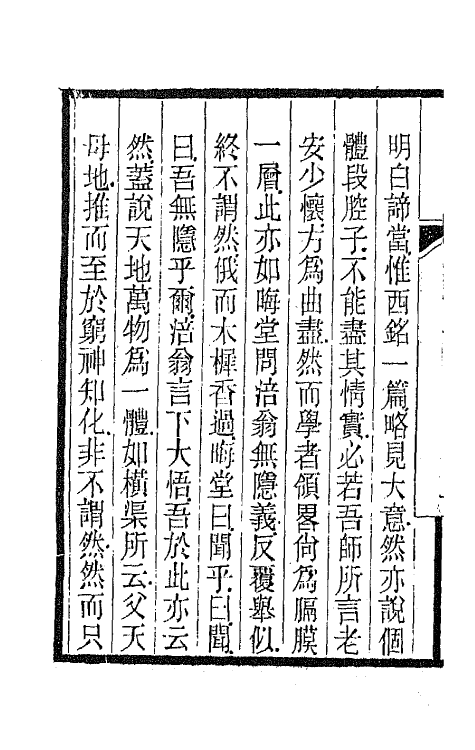 明白諦當惟西銘一篇略見大意然亦說個
體段腔子不能盡其情實必若吾師所言老
安少懷方爲曲盡然而學者領畧尙爲膈膜
一層此亦如晦堂問涪翁無隱義反覆舉似
終不謂然俄而木樨香過晦堂曰聞乎曰聞
曰吾無隱乎爾涪翁言下大悟吾於此亦云
然蓋說天地萬物爲一體如橫渠所云父天
母地推而至於窮神知化非不謂然然而只